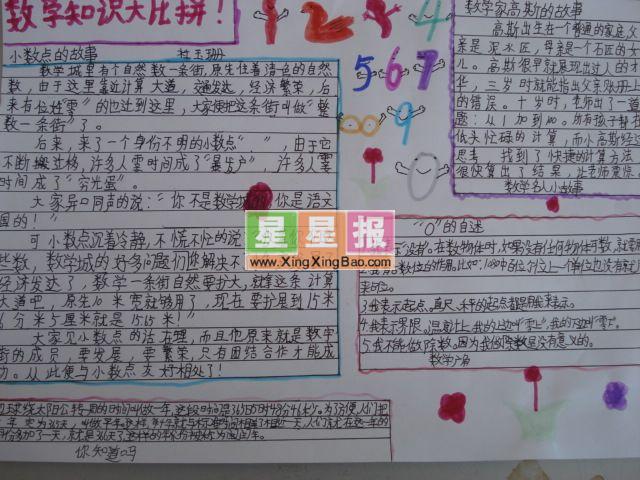 数字知识大比拼！
小数点的故事
数学城里有个自然数一条街,原先住着清一色的自然
数，由于这里靠近计算大道，交通发达，经济繁荣，后
来有位姓"零"的也迁到这里，大家便把这条街叫做"整
数一条街"了。
后来，来了一个身份不明的小数点" "，由于它
不断搬迁移，许多人霎时间成了"暴发户"，许多人霎
时间成了"穷光蛋"。
大家异口同声的说："你不是数学城的，你是语文
国的！"
可小数点沉着冷静，不慌不忙的说
些数 数学城的好多问题们您解决不
经济发达了，数学一条街自然要扩大，就算这条计算
大道吧，原先10米宽就够用了，现在要扩展到15米
6分米5厘米就是15.65米！"
大家见小数点的话有理，而且他原来就是数字
街的成员，要发展，要繁荣，只有团结合作才能成
功。从此便与小数点友好相处了！
你知道吗
5 6 7
9
0
数学家高斯的故事
高斯出生在一个普通的家庭父
亲是泥水匠，母亲是一个石匠的女
儿。高斯很早就展现出过人的才
华，三岁时就能指出父亲账册上
的错误。十岁时，老师出了一道
题：从1加到100。所有孩子都在
低头忙碌的计算，而小高斯经过
思考，找到了快捷的计算方法
很快算出了结果，让老师震惊。
数学名人小故事
"0"的自述
3.我表示起点。直尺、米平的起点都是用我来表示。
4.我表示界限。温度计上，我的上边叫"零上"，我的下边叫"零下"。
5.我不能做除数。因为我做除数是没有意义的。
数学广角
星星报
www.XingXingBao.com